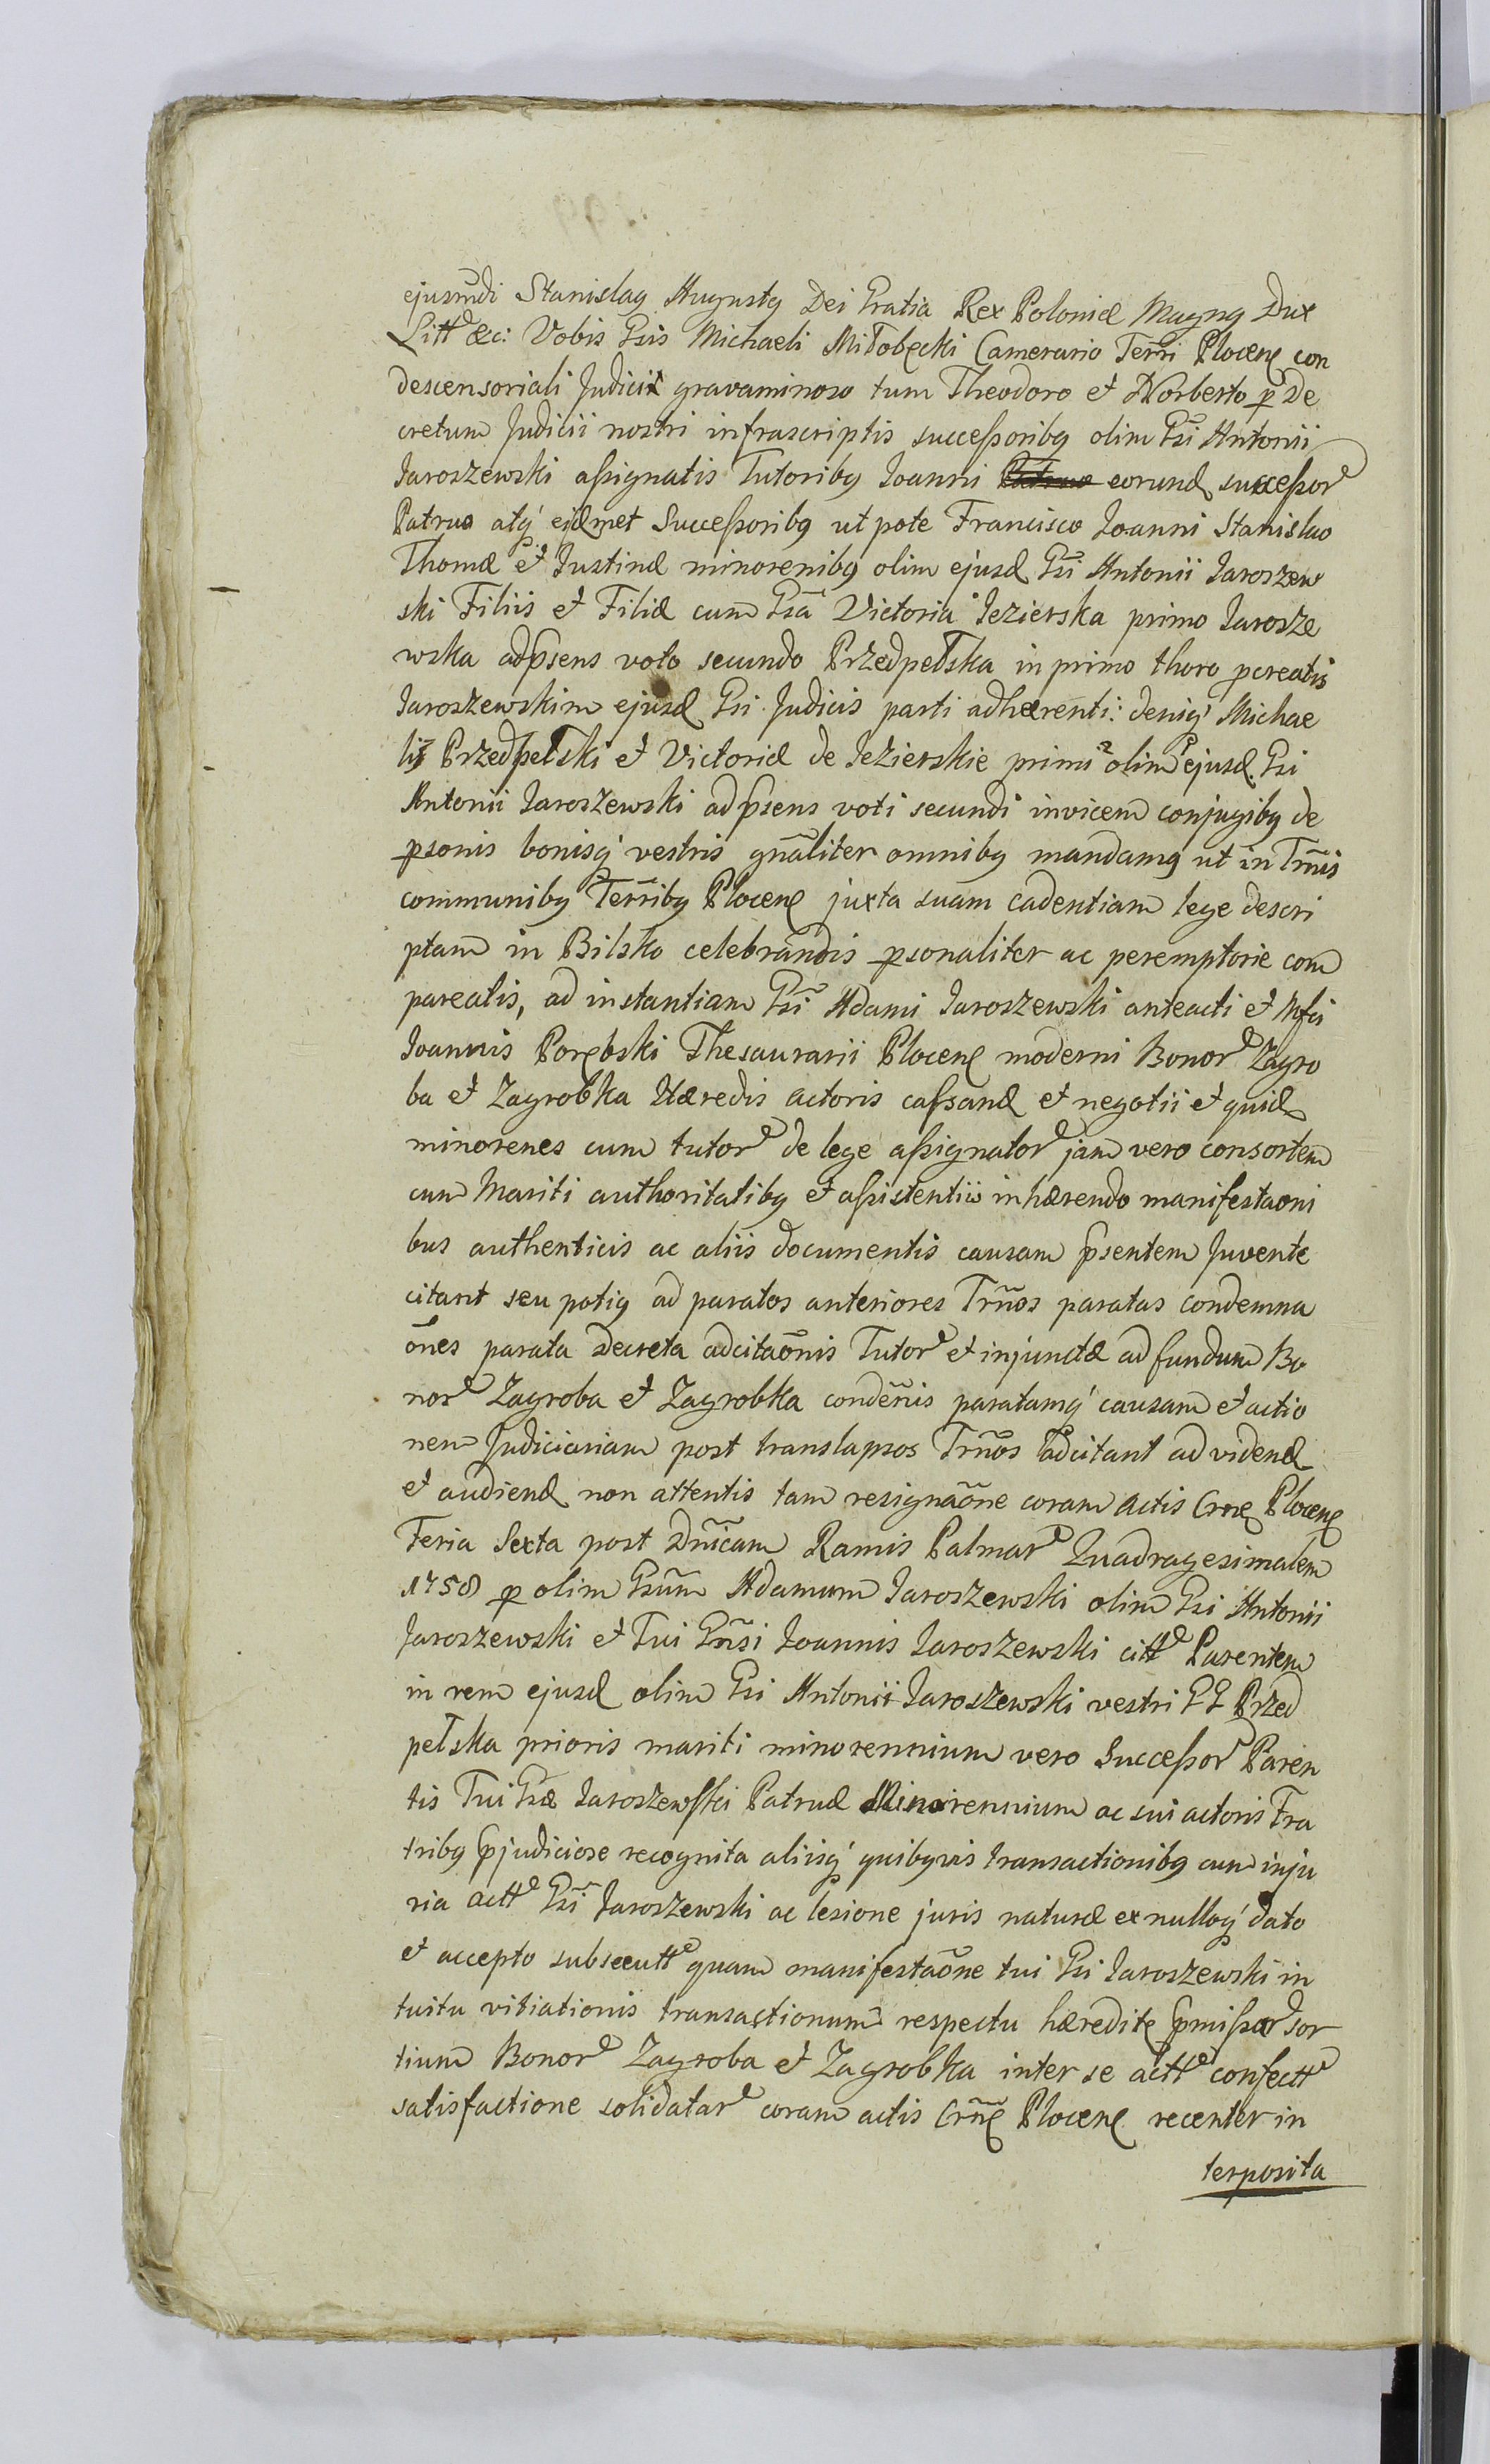 ejusmdi Stanislaꝰ Augustꝰ Dei Gratia Rex Poloniæ Magnꝰ Dux
Litt &c: Vobis Gsis Michaeli Miłobęcki Camerario Terri Plocen con
descensoriali Judicii gravaminoso tum Theodoro et Norberto p De
cretum Judicii nostri infrascriptis successoribꝰ olim Gsi Antonii
Jaroszewski assignatis Tutoribꝰ Joanni eorund successor
Patruo atq ejdemet Successoribꝰ ut pote Francisco Joanni Stanislao
Thomæ et Justinæ minorenibꝰ olim ejusd Gsi Antonii Jaroszew
ski Filiis et Filiæ cum Gsa Victoria Jezierska primo Jarosze
wska adpsens voto secundo Przedpełska in primo thoro pcreatis
Jaroszewskim ejusd Gsi Judicis parti adhærenti: deniq Michae
lis Przedpełski et Victoriæ de Jezierskie primi olim ejusd Gsi
Antonii Jaroszewski adpsens voti secundi invicem conjugibꝰ de
psonis bonisq vestris gnaliter omnibꝰ mandamꝰ ut in Trnis
communibꝰ Terribꝰ Plocen juxta suam cadentiam lege descri
ptam in Bilsko celebrandis psonaliter ac peremptorie com
pareatis, ad instantiam Gsi Adami Jaroszewski anteacti et Mfci
Joannis Porębski Thesaurarii Plocen moderni Bonor Zagro
ba et Zagrobka Hæredis actoris cassand et negotii et quid
minorenes cum tutor de lege assignator jam vero consortem
cum Mariti authoritatibꝰ et assistentiis inhærendo manifestaoni
bus authenticis ac aliis documentis causam psentem Juvente
citant seu potiꝰ ad paratos anteriores Trnos paratas condemna
ones parata Decreta adcitaonis Tutor et injunctæ ad fundum Bo
nor Zagroba et Zagrobka condenis paratamq causam et actio
nem Judiciariam post translapsos Trnos adcitant ad vidend
et audiend non attentis tam resignaone coram actis Crne Plocen
Feria Sexta post Dnicam Ramis Palmar Quadragesimalem
1758 p olim Gsum Adamum Jaroszewski olim Gsi Antonii
Jaroszewski et Tui Gnsi Joannis Jaroszewski citt Parentem
in rem ejusd olim Gsi Antonii Jaroszewski vestri GG Przed
pełska prioris mariti minorennium vero Successor Paren
tis Tui Gsæ Jaroszewski Patruæ Minorennium ac sui actoris Fra
tribꝰ pjudiciose recognita aliisq quibꝰvis transactionibꝰ cum inju
ria actt Gsi Jaroszewski ac lesione juris naturæ ex nulloq dato
et accepto subsecutt quam manifestaone tui Gsi Jaroszewski in
tuitu vitiationis transactionum respectu hæredite pmissar sor
tium Bonor Zagroba et Zagrobka inter se actt confectt
satisfactione solidatar coram actis Crne Plocen recenter in
terposita